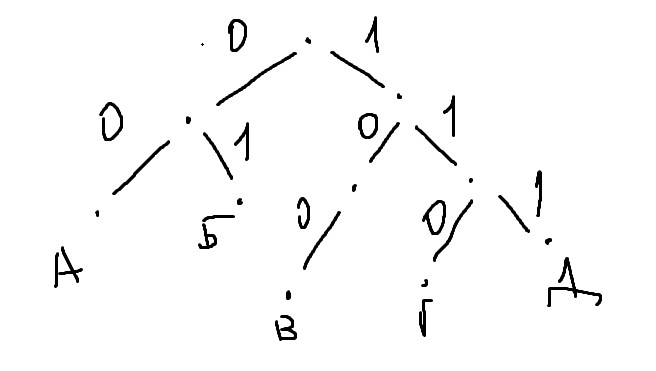 0 1
0 1 0 1
0 0 1
А Б
В Г Д